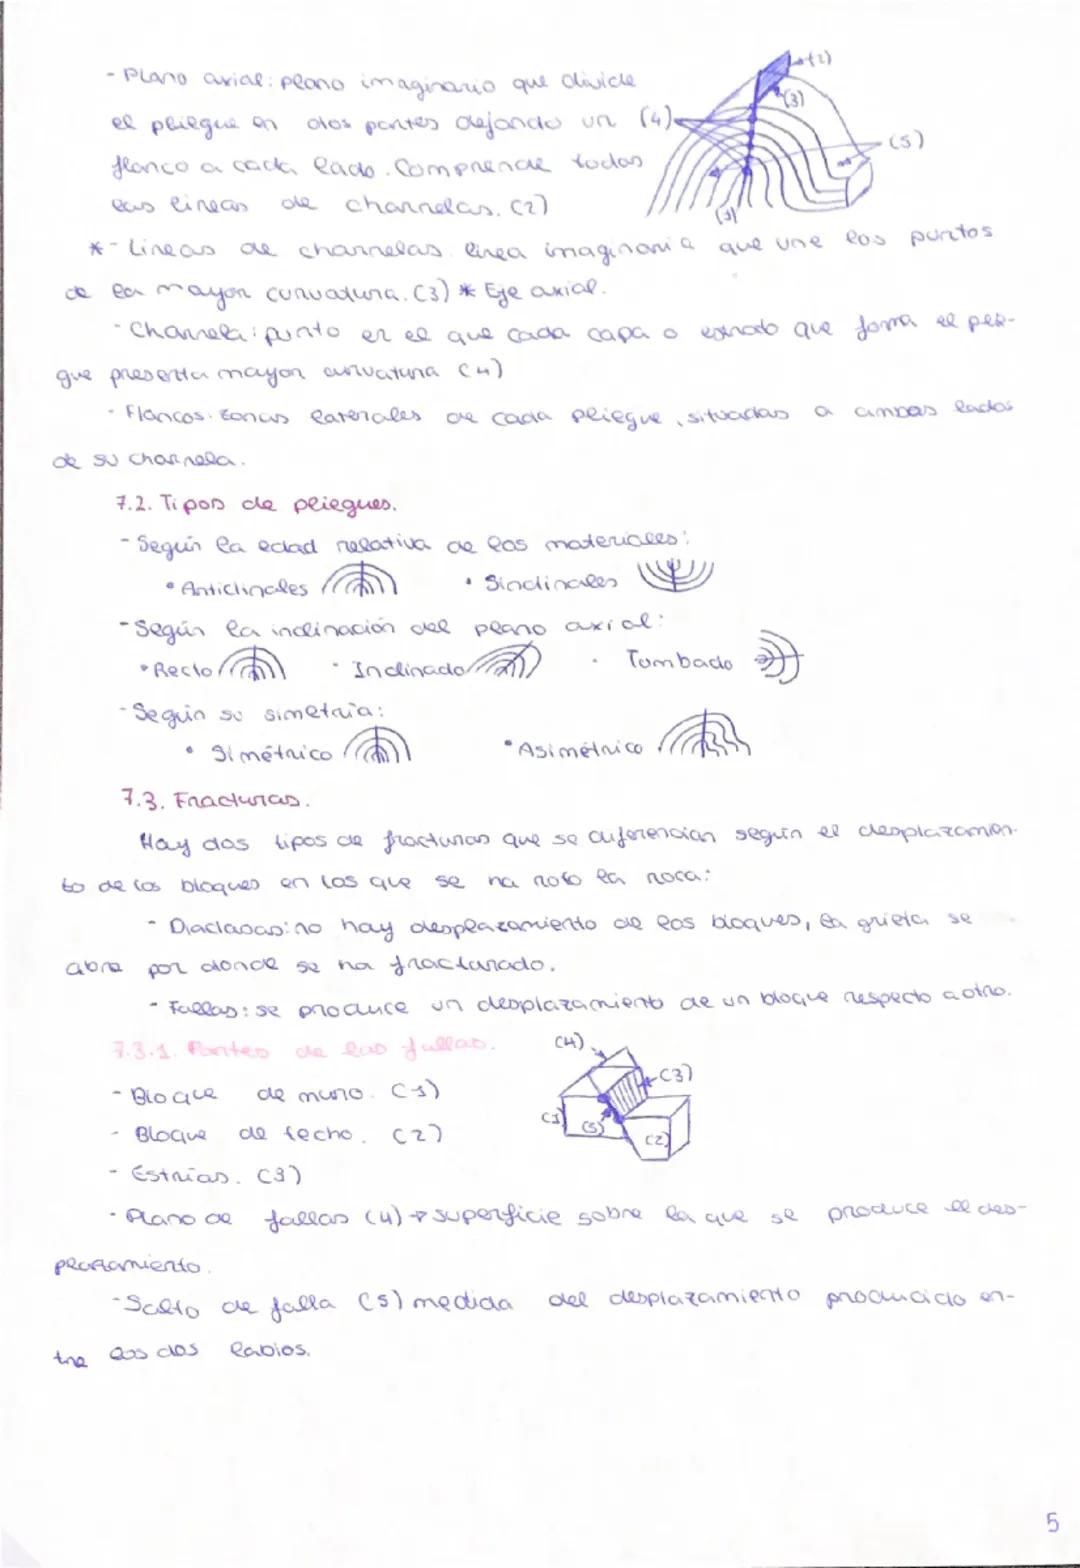 - Plano axial: plano imaginario que divide
el pliegue en dos partes dejando un
flanco a cada lado. Comprende todas
las lineas de charnelas. (2)
(2)
(3)
(4)
(5)
(1)
* - Lineas de charnelas: linea imaginaria que une los puntos
de la mayor curvatura. (3) * Eje axial.
- Charnela: punto en el que cada capa o estrato que forma el plie-
gue presenta mayor curvatura (4)
- Flancos: zonas laterales de cada pliegue, situadas a ambas lados
de su charnela.
7.2. Tipos de pliegues.
- Según la edad relativa de los materiales:
• Anticlinales • Sinclinales
- Según la inclinación del plano axial:
• Recto • Inclinado • Tumbado
- Según su simetría:
• Simétrico • Asimétrico
7.3. Fracturas.
Hay dos tipos de fracturas que se diferencian según el desplazamien-
to de los bloques en los que se ha roto la roca:
- Diaclasas: no hay desplazamiento de los bloques, la grieta se
abre por donde se ha fracturado.
- Fallas: se produce un desplazamiento de un bloque respecto a otro.
7.3.1. Partes de las fallas.
- Bloque de muro. (1)
- Bloque de techo. (2)
- Estrías. (3)
(4)
(3)
(1)
(5)
(2)
- Plano de fallas (4) → superficie sobre la que se produce el des-
plazamiento.
- Salto de falla (5) medida del desplazamiento producido en-
tre los dos labios.
5